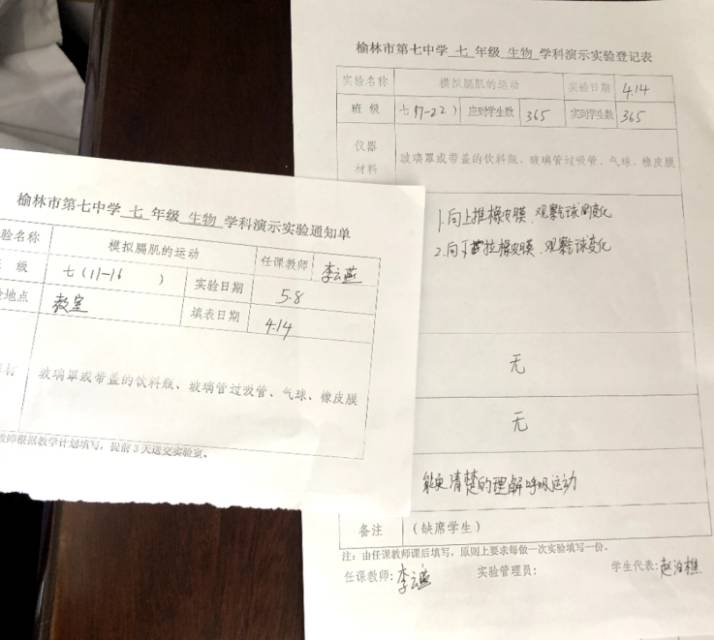 榆林市第七中学 七 年级 生物 学科演示实验登记表
实验名称 模拟膈肌的运动 实验日期 4.14
班 级 七(17-22) 应到学生数 365 实到学生数 365
仪器
材料 玻璃罩或带盖的饮料瓶、玻璃管过吸管、气球、橡皮膜
1.向上推橡皮膜,观察气球的变化
2.向下拉橡皮膜,观察气球变化
无
无
能更清楚的理解呼吸运动
备注 (缺席学生)
注:由任课教师课后填写,原则上要求每做一次实验填写一份。
任课教师:李云燕 实验管理员: 学生代表:
榆林市第七中学 七 年级 生物 学科演示实验通知单
验名称 模拟膈肌的运动 任课教师 李云燕
级 七(11-16 ) 实验日期 5.8
地点 教室 填表日期 4.14
材 玻璃罩或带盖的饮料瓶、玻璃管过吸管、气球、橡皮膜
教师根据教学计划填写,提前3天送交实验室。